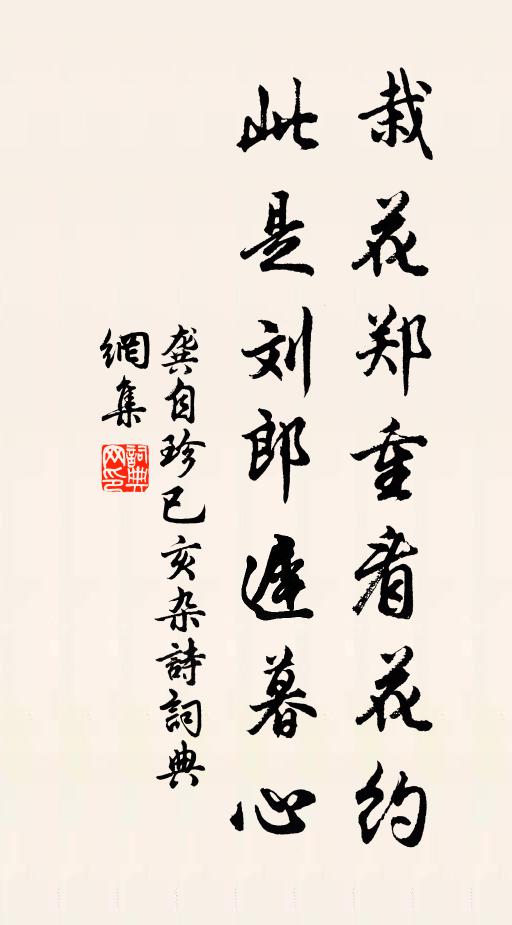 栽花郑重看花约
此是刘郎迟暮心
龚自珍己亥杂詩詞典
網集
詞典
网印